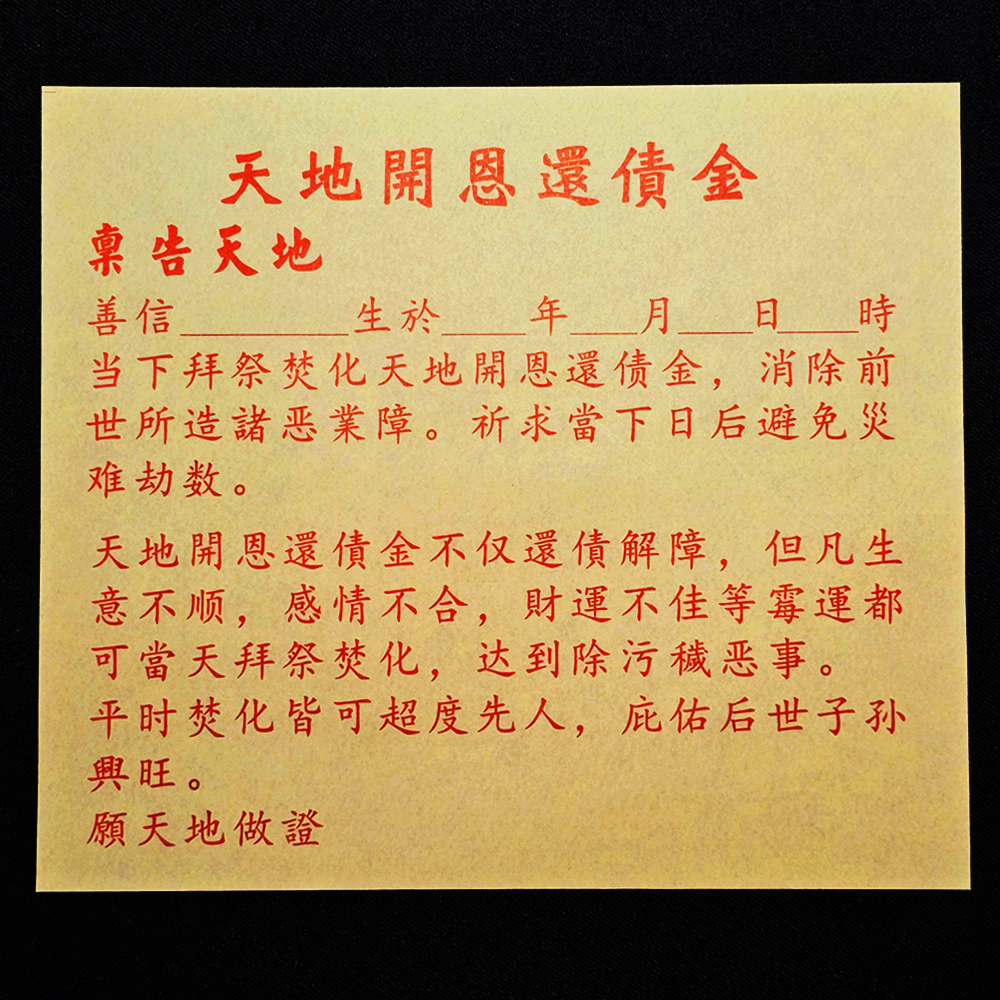 天地開恩還債金
稟告天地
善信__________生於_____年____月____日____時
当下拜祭焚化天地開恩還债金，消除前
世所造諸恶業障。祈求當下日后避免災
难劫数。
天地開恩還債金不仅還債解障，但凡生
意不顺，感情不合，財運不佳等霉運都
可當天拜祭焚化，达到除污穢恶事。
平时焚化皆可超度先人，庇佑后世子孙
興旺。
願天地做證